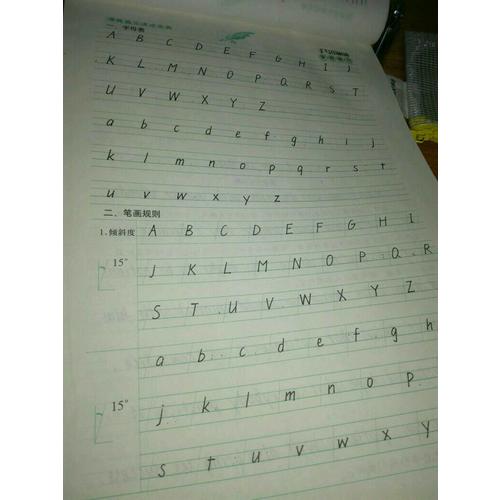 二、字母表
A B C D E F G H I J
K L M N O P Q R S T
U V W X Y Z
a b c d e f g h i j
k l m n o p q r s t
u v w x y z
二、笔画规则
1.倾斜度 A B C D E F G H I
15° J K L M N O P Q R
S T U V W X Y Z
a b c d e f g h
15° j k l m n o p
s t u v w x y